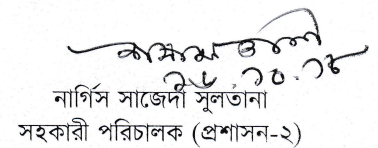 ২৮.১০.১৪
নার্গিস সাজেদী সুলতানা
সহকারী পরিচালক (প্রশাসন-২)